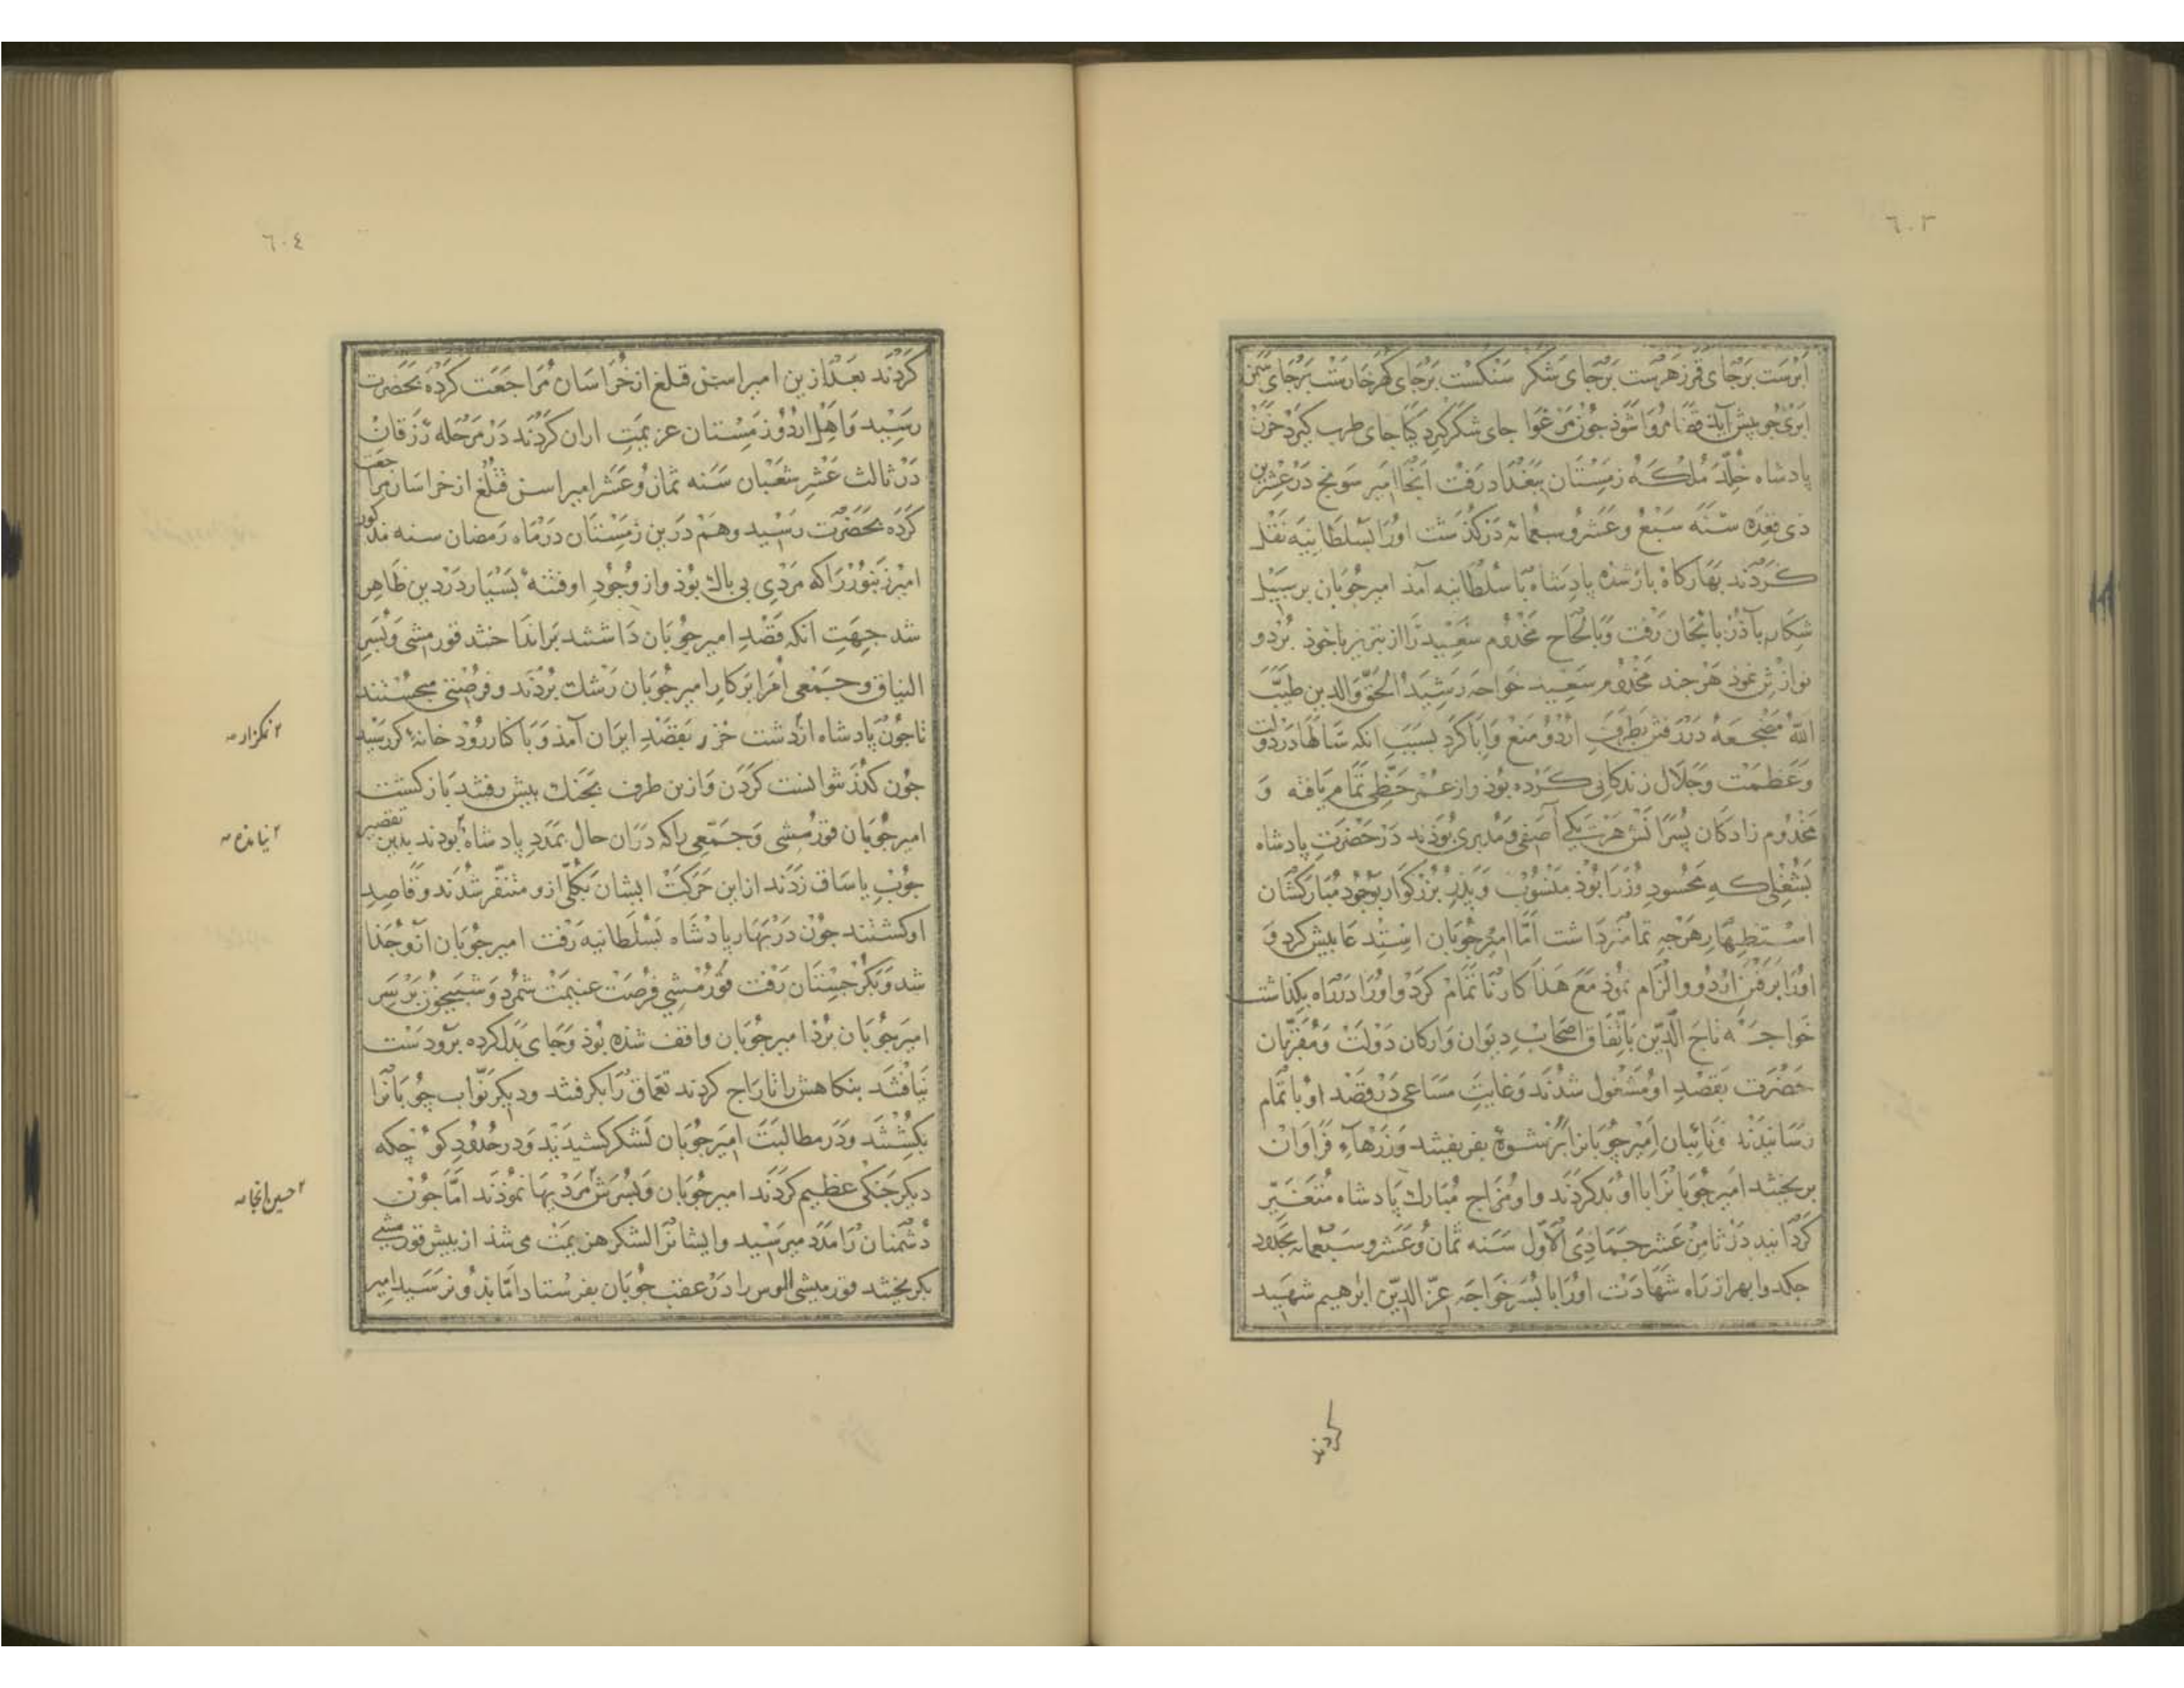 ٦٠٣
ابرست برجای قمر زهرست برجای شکر سنکست برجای کهر خارست برجای سمن
ابری جو پیش آید قضا مروا شوذ جون مرغوا جای شکر کیرد کیا جای طرب کیرد حزن
پادشاه خلّد ملکه زمستان ببغداد رفت آنجا امیر سونج در عشرین
ذی قعده سنه سبع و عشر و سبعمائه درکذشت اورا بسلطانیه نقل
کردند بهارکاه باز شذه پادشاه با سلطانیه آمذ امیر جوبان بر سبیل
شکار بآذربایجان رفت و بالحاح مخدوم سعید را از تبریز با خوذ برد و
نوازش نموذ هر جند مخدوم سعید خواجه رشید الحق والدین طیّب
الله مضجعه در رفتن بطرف اردو منع و ابا کرد بسبب انکه سالها در دولت
و عظمت و جلال زندکانی کرده بوذ و از عمر حظّی تمام یافته و
مخدوم زادکان پسرانش هریک آصفی و مدبری بوذند در حضرت پادشاه
بشغلی که محسود وزرا بوذ منسوب و پذر بزرکوار بوجود مبارکشان
استظهار هرجه تمامتر داشت امّا امیر جوبان استدعا بیش کرد و
اورا برفتن اردو والزام نموذ مع هذا کار نا تمام کرد و اورا در راه بکذاشت
خواجه تاج الدین باتفاق اصحاب دیوان و ارکان دولت و مقربان
حضرت بقصد او مشغول شدند و غایت مساعی در قصد او باتمام
رسانیدند و نائبان امیر جوبانرا برشوة بفریفتند و زرهاء فراوان
بریختند امیر جوبانرا با او بد کردند و او مزاج مبارک پادشاه متغیّر
کردانید در ثامن عشر جمادی الاوّل سنه ثمان و عشر و سبعمایه بحدود
جکد و ابهر از راه شهادت اورا با پسر خواجه عزّ الدّین ابرهیم شهید
کردند
٦٠٤
کردند بعد ازین امیر اسن قتلغ از خراسان مراجعت کرده بحضرت
رسید و اهل اردو زمستان عزیمت اران کردند در مرحله زرقان
در ثالث عشر شعبان سنه ثمان و عشر امیر اسن قتلغ از خراسان مراجعت
کرده بحضرت رسید و هم درین زمستان در ماه رمضان سنه مذکور
امیر زنبوررا که مردی بی باک بوذ و از وجود او فتنهٔ بسیار درین ظاهر
شد جهت انکه قصد امیر جوبان داشتند براندا ختند قورمشی و پسر
الیناق و جمعی امرا بر کار امیر جوبان رشک بردند و فرصتی میجستند
تا جون پادشاه از دشت خزر بقصد ایران آمذ و با کنار رود خانهٔ کر رسید
جون کذر نتوانست کردن و ازین طرف بجنک بیش رفتند باز کشت
امیر جوبان قورمشی و جمعی را که در ان حال بمدد پادشاه بودند بدین تقصیر
جوب یاساق زدند از این حرکت ایشان بکلّی ازو متنفّر شدند و قاصد
او کشتند جون در بهار پادشاه بسلطانیه رفت امیر جوبان از و جذا
شد و بکرجستان رفت قورمشی فرصت غنیمت شمرد و شبیخون بر سر
امیر جوبان برد امیر جوبان واقف شذه بوذ و جای بدل کرده برو دست
نیافتند بنکاهش را تاراج کردند تقماق را بکرفتند و دیکر نوّاب جوبانرا
بکشتند و در مطالبت امیر جوبان لشکر کشیدند و در حدود کوکجکه
دیکر جنکی عظیم کردند امیر جوبان و پسرش مردیها نموذند امّا جون
دشمنان را مدد میرسید و ایشانرا لشکر هزیمت می شذ از بیش قورمشی
بکریختند قورمیشی الوس را در عقب جوبان بفرستاد امّا بذو نرسید امیر
۲ نمکزار
۲ نیامده
۲ حسن انجا